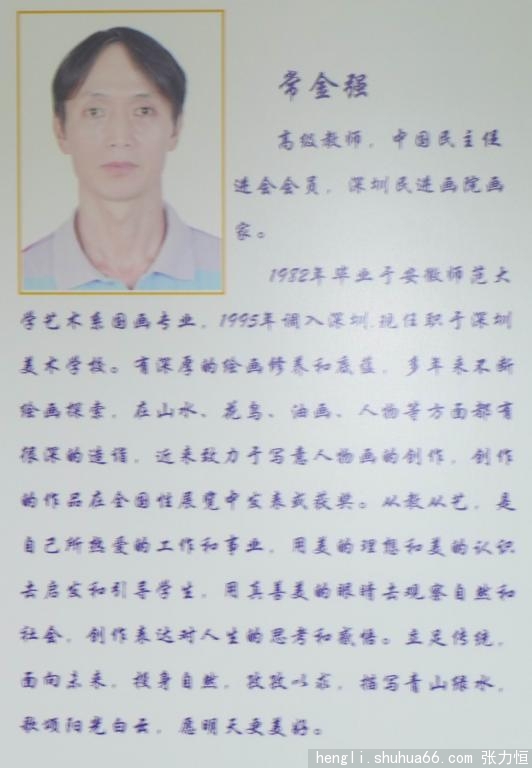 常金强
高级教师，中国民主促
进会会员，深圳民进画院画
家。
1982年毕业于安徽师范大
学艺术系国画专业，1995年调入深圳，现任职于深圳
美术学校。有深厚的绘画修养和底蕴，多年来不断
绘画探索，在山水、花鸟、油画、人物等方面都有
很深的造诣，近来致力于写意人物画的创作，创作
的作品在全国性展览中发表或获奖。从教从艺，是
自己所热爱的工作和事业，用美的理想和美的认识
去启发和引导学生，用真善美的眼睛去观察自然和
社会，创作表达对人生的思考和感悟。立足传统，
面向未来，投身自然，孜孜以求，描写青山绿水，
歌颂阳光白云，愿明天更美好。
hengli.shuhua66.com 张力恒